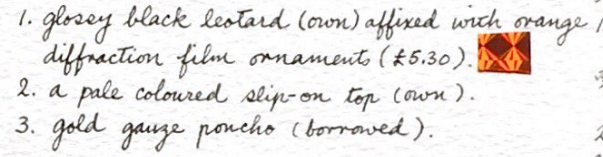 1. glossy black leotard (own) affixed with orange
diffraction film ornaments (£5.30).
2. a pale coloured slip-on top (own).
3. gold gauze poncho (borrowed).